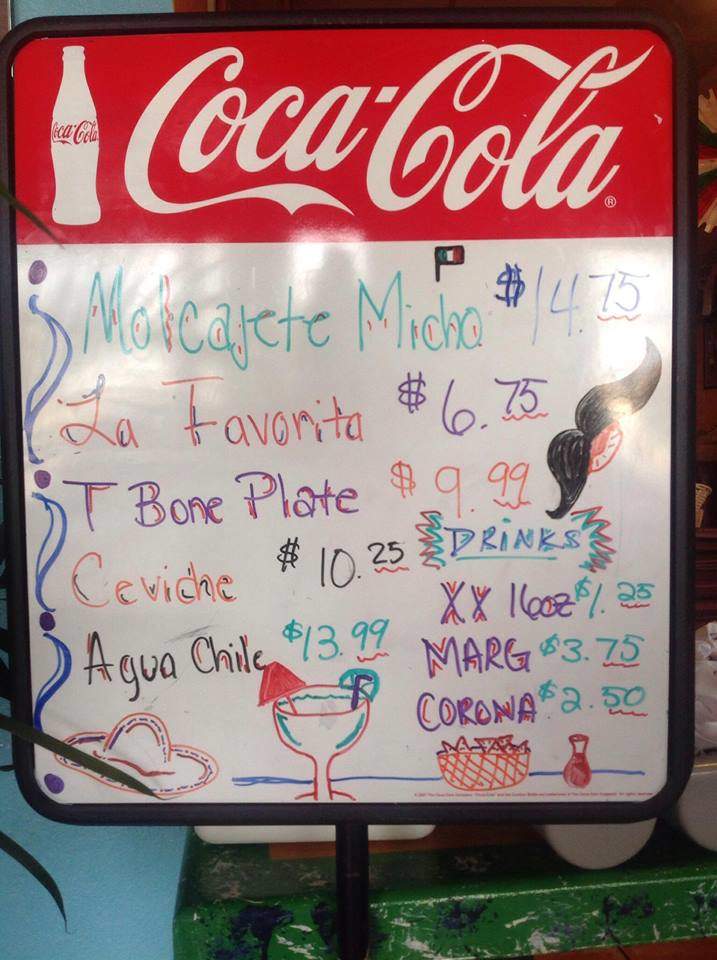 Coca-Cola
Coca-Cola®
Molcajete Micho $14.75
La Favorita $6.75
T Bone Plate $9.99
Ceviche $10.25
Agua Chile $13.99
DRINKS
XX 16oz $1.25
MARG $3.75
CORONA $2.50